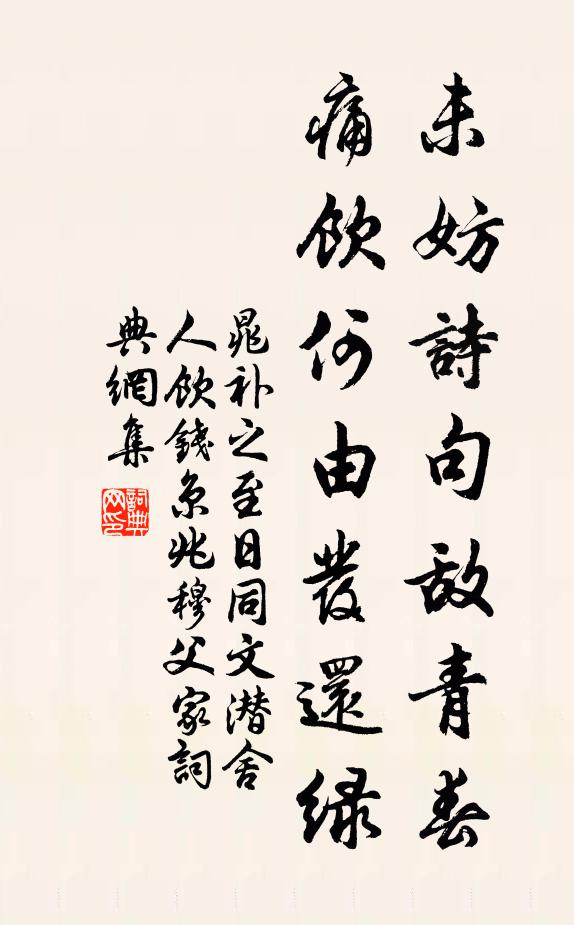 未妨詩句敌青春
痛飲何由发還緑
晁补之至日同文潜舍
人飲錢京兆穆父家詞
典網集
詞典
网印